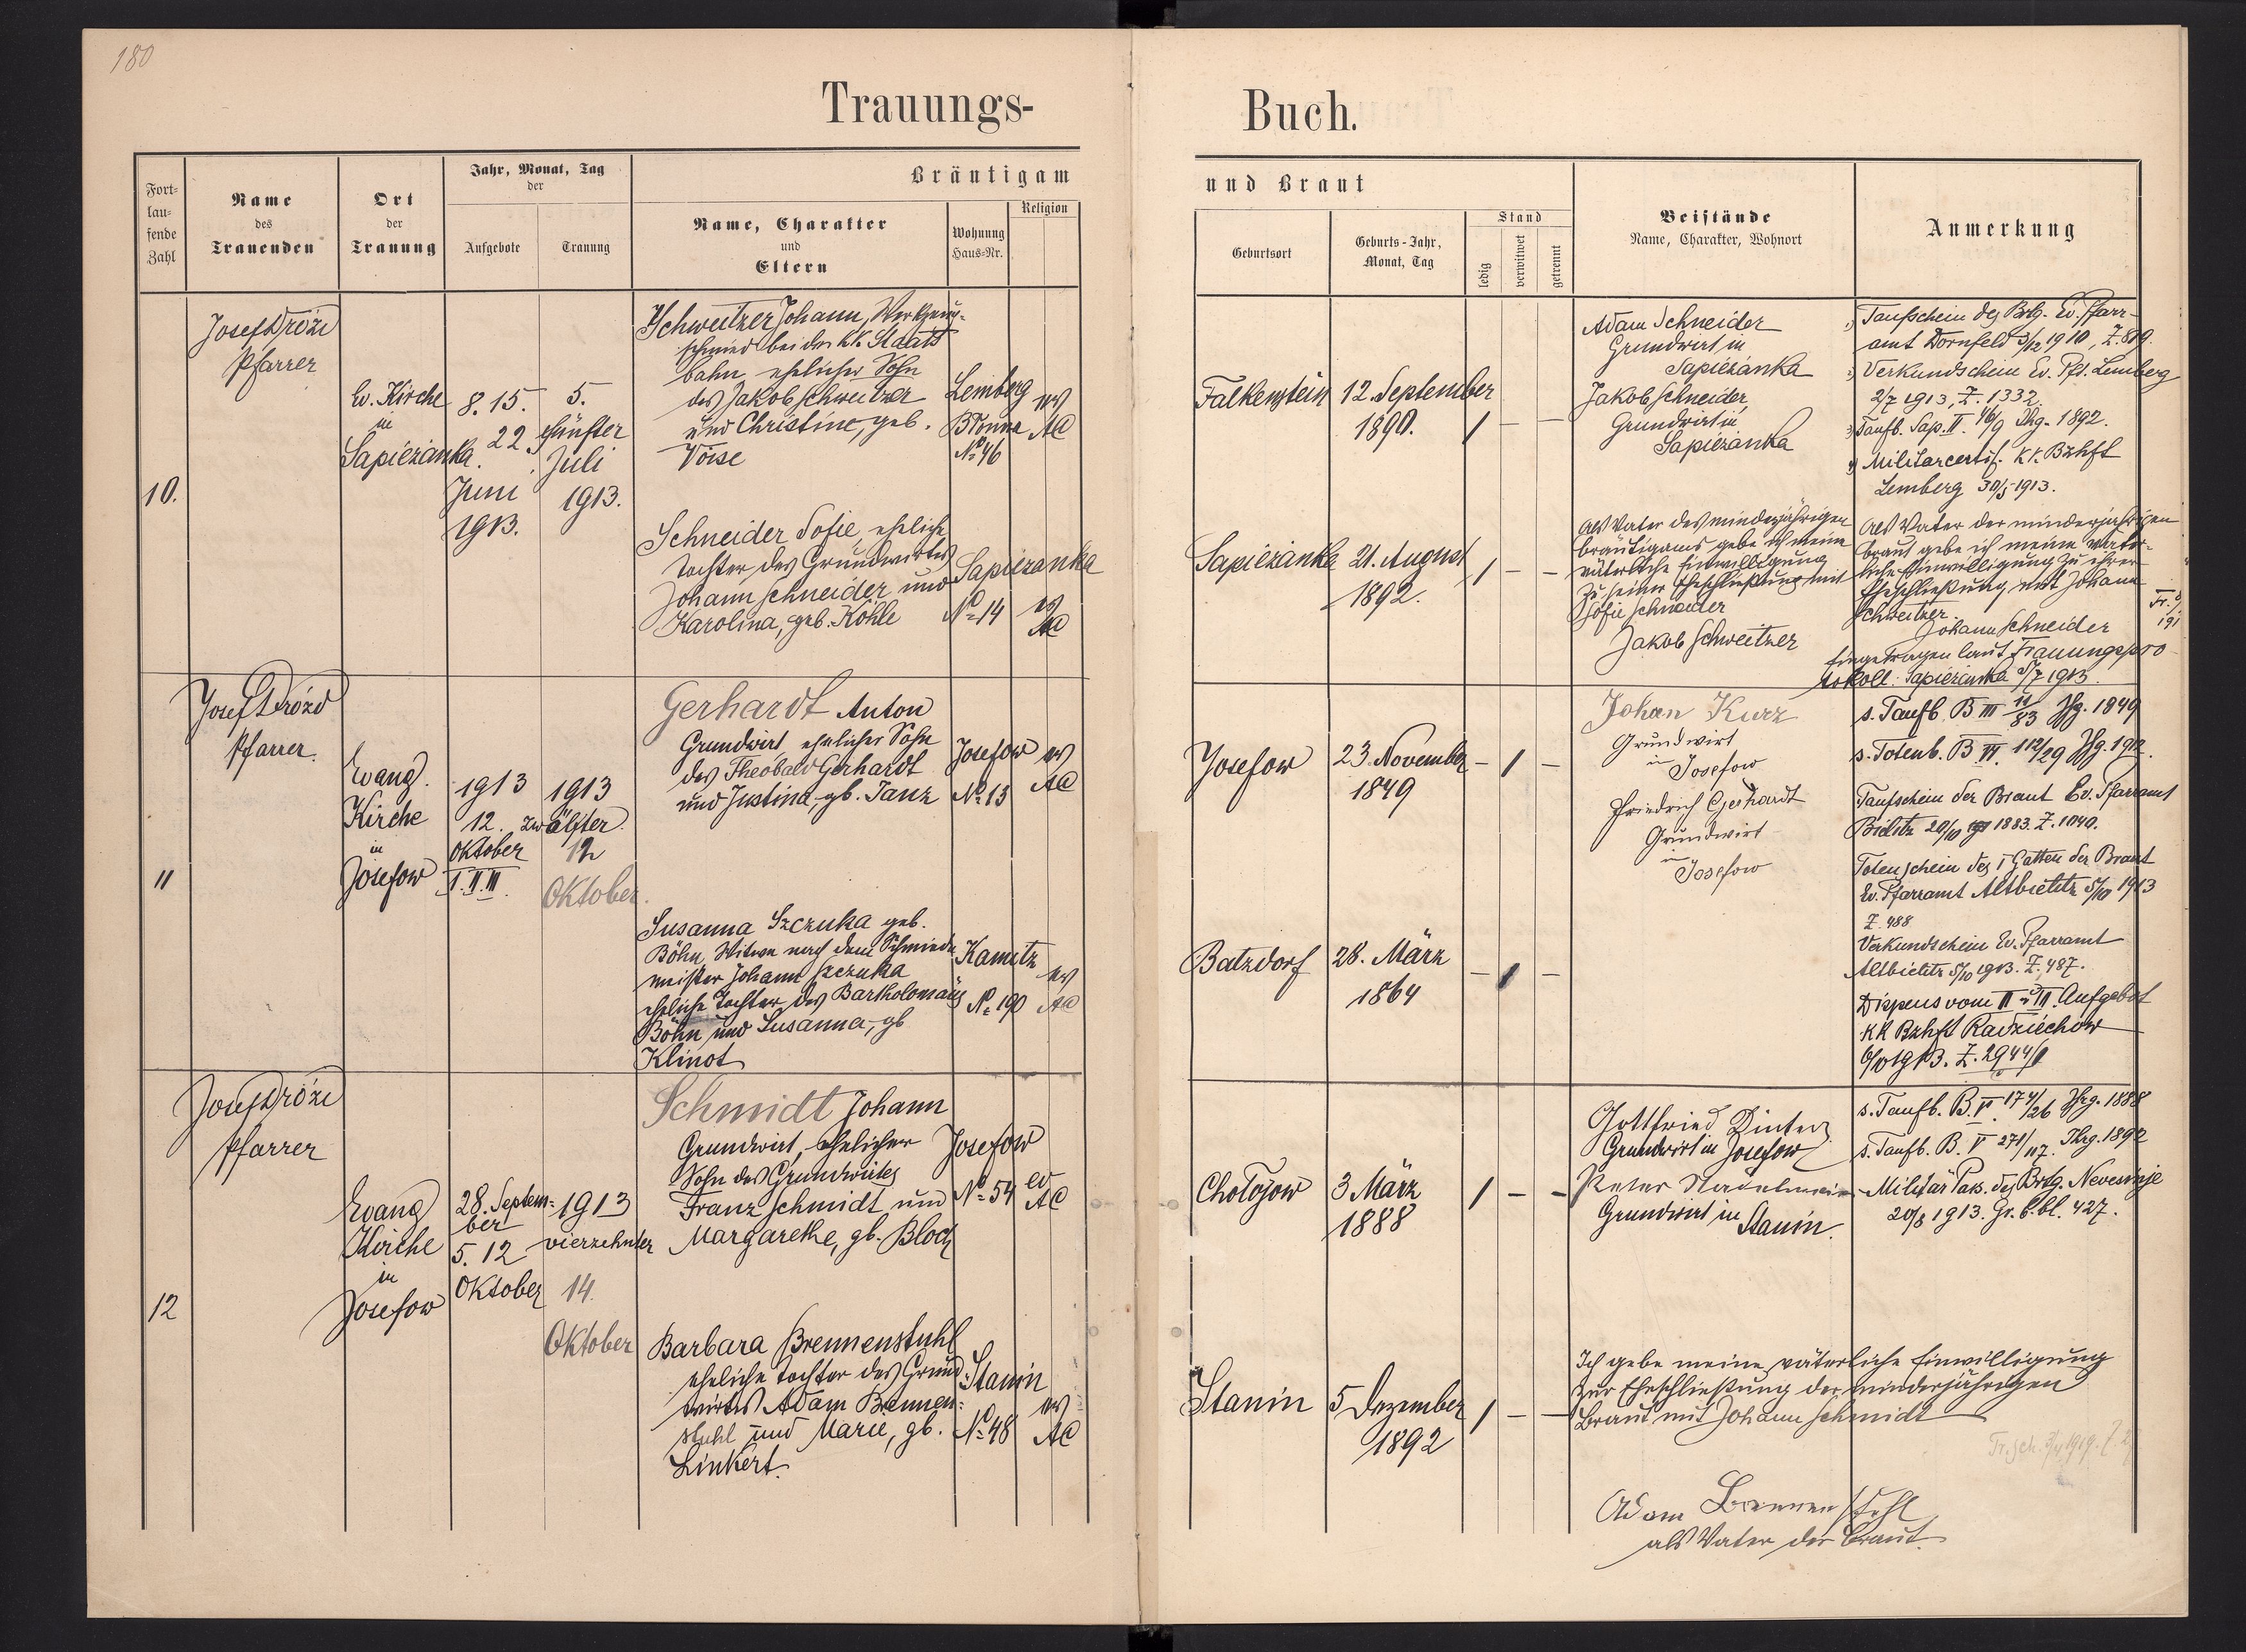 180
Trauungs-
Buch.
Fort-
lau-
fende
Zahl
Name
des
Trauenden
Ort
der
Trauung
Jahr, Monat, Tag
der
Aufgebote
Trauung
Bräutigam
Name, Charakter
und
Eltern
Wohnung
Haus-Nr.
Religion
und Braut
Geburtsort
Geburts-Jahr,
Monat, Tag
Stand
ledig
verwitwet
getrennt
Beistände
Name, Charakter, Wohnort
Anmerkung
10.
Pfarrer
Ev. Kirche
in
Sapieżanka.
8. 15.
22.
Juni
1913.
5.
fünfter
Juli
1913.
Schweitzer Johann, Werkzeug-
schmied bei der kk. Staats
bahn, ehelicher Sohn
des Jakob Schweitzer
und Christine, geb.
Lemberg
No 46
ev
AC
Falkenstein
12. September
1890.
/ – –
Adam Schneider
Grundwirt in
Sapieżanka
Jakob Schneider,
Grundwirt in
Sapieżanka
Taufschein des Brtg. Ev. Pfarr-
amt Dornfeld
Verkundschein Ev. Pf. Lemberg
2/7 1913, Z. 1332.
Taufb. Sap. II. 46/9 Jhg. 1892.
Militärcertif. kk. Bzhft
Lemberg 30/5 1913.
Schneider Sofie, eheliche
Tochter des Grundwirtes
Johann Schneider und
Karolina, geb. Köhle
Sapieżanka
No 14
ev
AC
Sapieżanka
21. August
1892.
/ – –
Als Vater des minderjährigen
Bräutigams gebe ich meine
väterliche Einwilligung
zu seiner Eheschließung mit
Sofie Schneider
Jakob Schweitzer
Als Vater der minderjährigen
Braut gebe ich meine väter-
liche Einwilligung zu ihrer
Eheschließung mit Johann
Schweitzer.
Johann Schneider
Eingetragen laut Trauungspro-
tokoll. Sapieżanka 5/7 1913.
11
Josef Drózd
Pfarrer.
Evang.
Kirche
in
Josefow
1913
12.
Oktober
I. II. III.
1913
zwölfter
12
Oktober.
Gerhardt Anton
Grundwirt, ehelicher Sohn
des Theobald Gerhardt
und Justina, gb. Tanz
Josefow
No 13
ev
AC
Josefow
23. November
1849
– / –
Johan Kurz
Grundwirt
in
Josefow
Friedrich Gerhardt
Grundwirt
in
Josefow
s. Taufb. B III 11/83 Jhg. 1849
s. Totenb. B VI. 112/29 Jhg. 1912.
Taufschein der Braut Ev. Pfarramt
Bielitz 20/10 1883. Z. 1040.
Totenschein des I Gatten der Braut
Ev. Pfarramt Altbielitz 5/10 1913
Z. 488
Verkundschein Ev. Pfarramt
Altbielitz 5/10 1913. Z. 487.
Dispens vom II u III Aufgebot
KK Bzhft Radziechów
Susanna Szczuka geb.
Böhn, Witwe nach dem Schmiede
meister Johann Szczuka
eheliche Tochter des Bartholomäus
Böhn und Susanna, gb
Klinot
Kamitz
No 190
ev
AC
Batzdorf
28. März
1864
– / –
12
Pfarrer
Evang
Kirche
in
Josefow
28. Septem-
ber
5. 12
Oktober
1913
vierzehnter
14.
Oktober
Schmidt Johann
Grundwirt, ehelicher
Sohn des Grundwirtes
Franz Schmidt und
Margarethe, gb. Bloch
Josefow
No 54
ev
AC
Chołojow
3 März
1888
/ – –
Gottfried Dinter
Grundwirt in Josefow
Peter
Grundwirt in
Stanin.
s. Taufb. B. V 174/26 Jhrg. 1888
s. Taufb. B. V 271/117. Jhrg. 1892
Militär Pass. des Brtg. Nevesinje
20/8 1913. Gr. b. bl. 427.
Barbara Brennenstuhl
eheliche Tochter des Grund-
wirtes Adam Brennen-
stuhl und Marie, gb.
Linkert.
Stanin
No 48
ev
AC
Stanin
5 Dezember
1892
/ – –
Ich gebe meine väterliche Einwilligung
zur Eheschließung der minderjährigen
Braut mit Johann Schmidt
Adam Brennenstuhl
als Vater der Braut.